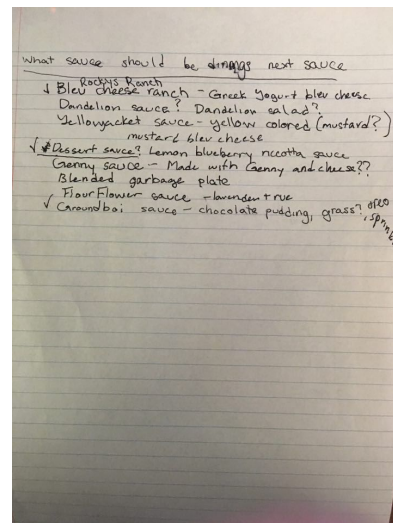 What sauce should be dinings next sauce
Rockys Ranch
↓ Bleu cheese ranch - Greek Yogurt bleu cheese
Dandelion sauce? Dandelion salad?
Yellowjacket sauce - yellow colored (mustard?)
mustard bleu cheese
✓ * Dessert sauce? Lemon blueberry riccotta sauce
Genny sauce - Made with Genny and cheese??
Blended garbage plate
FlourFlower sauce - lavender + rue
✓ Groundboi sauce - chocolate pudding, grass?, oreo